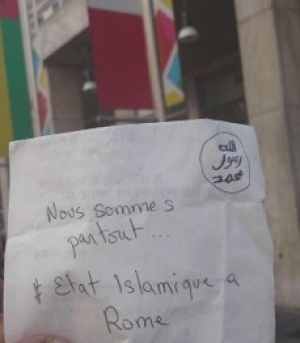 الله
رسول
محمد
Nous sommes
partout...
# Etat Islamique a
Rome